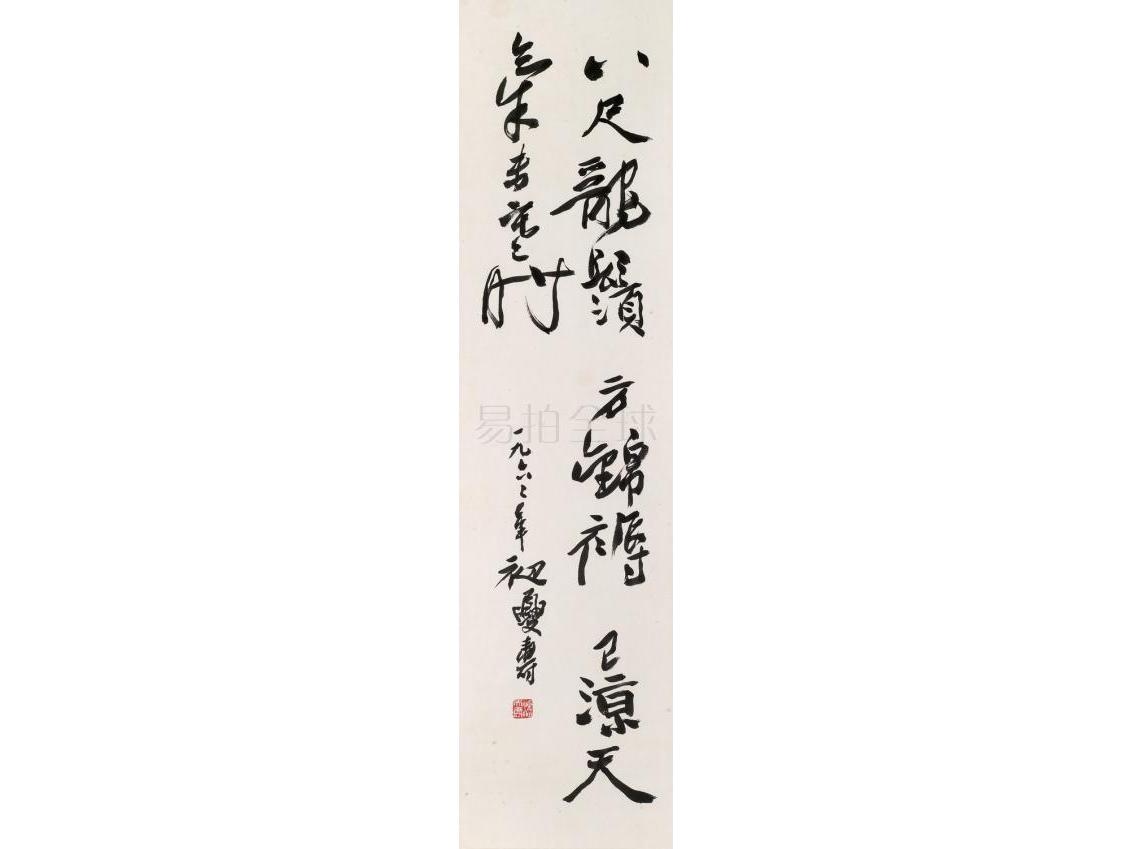 八尺龍鬚方錦褥已涼天
氣未寒時
一九六二年
易拍全球